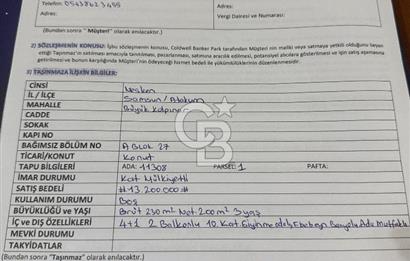 Telefon: 05438623455
Adresi:
Adresi:
Vergi Dairesi ve Numarası:
(Bundan sonra " Müşteri" olarak anılacaktır.)
2) SÖZLEŞMENİN KONUSU: İşbu sözleşmenin konusu, Coldwell Banker Park tarafından Müşteri nin maliki veya satmaya yetkili olduğunu beyan
ettiği Taşınmaz'ın satılması amacıyla tanıtılması, pazarlanması, satımına aracılık edilmesi, potansiyel alıcılara gösterilmesi ve için satış aşamasına
getirilmesi ve bunun karşılığında Müşteri'nin ödeyeceği hizmet bedeli ile yükümlülüklerinin düzenlenmesidir.
3) TAŞINMAZA İLİŞKİN BİLGİLER:
CİNSİ Mesken
İL / İLÇE Samsun / Atakum
MAHALLE Büyük Kolpınar
CADDE
SOKAK
KAPI NO
BAĞIMSIZ BÖLÜM NO A Blok 27
TİCARİ/KONUT Konut
TAPU BİLGİLERİ ADA: 11308 PARSEL: 1 PAFTA:
İMAR DURUMU Kat Mülkiyetli
SATIŞ BEDELİ #13.200.000#
KULLANIM DURUMU Boş
BÜYÜKLÜĞÜ ve YAŞI Brüt 230 m² Net 200 m² 3 yaş
İÇ ve DIŞ ÖZELLİKLERİ 4+1 2 Balkonlu 10. Kat Giyinme odalı Ebeveyn Banyolu Ada Mutfaklı
MEVKİ DURUMU
TAKYİDATLAR
(Bundan sonra "Taşınmaz" olarak anılacaktır.)
CB